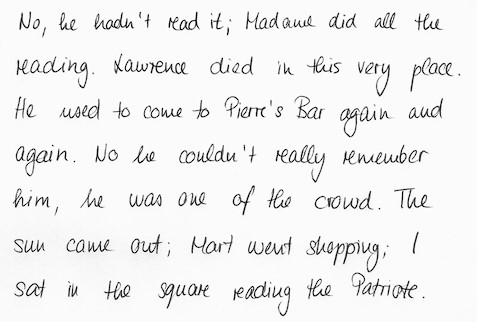 No, he hadn't read it; Madame did all the
reading. Lawrence died in this very place.
He used to come to Pierre's Bar again and
again. No he couldn't really remember
him, he was one of the crowd. The
sun came out; Mart went shopping; I
sat in the square reading the Patriote.